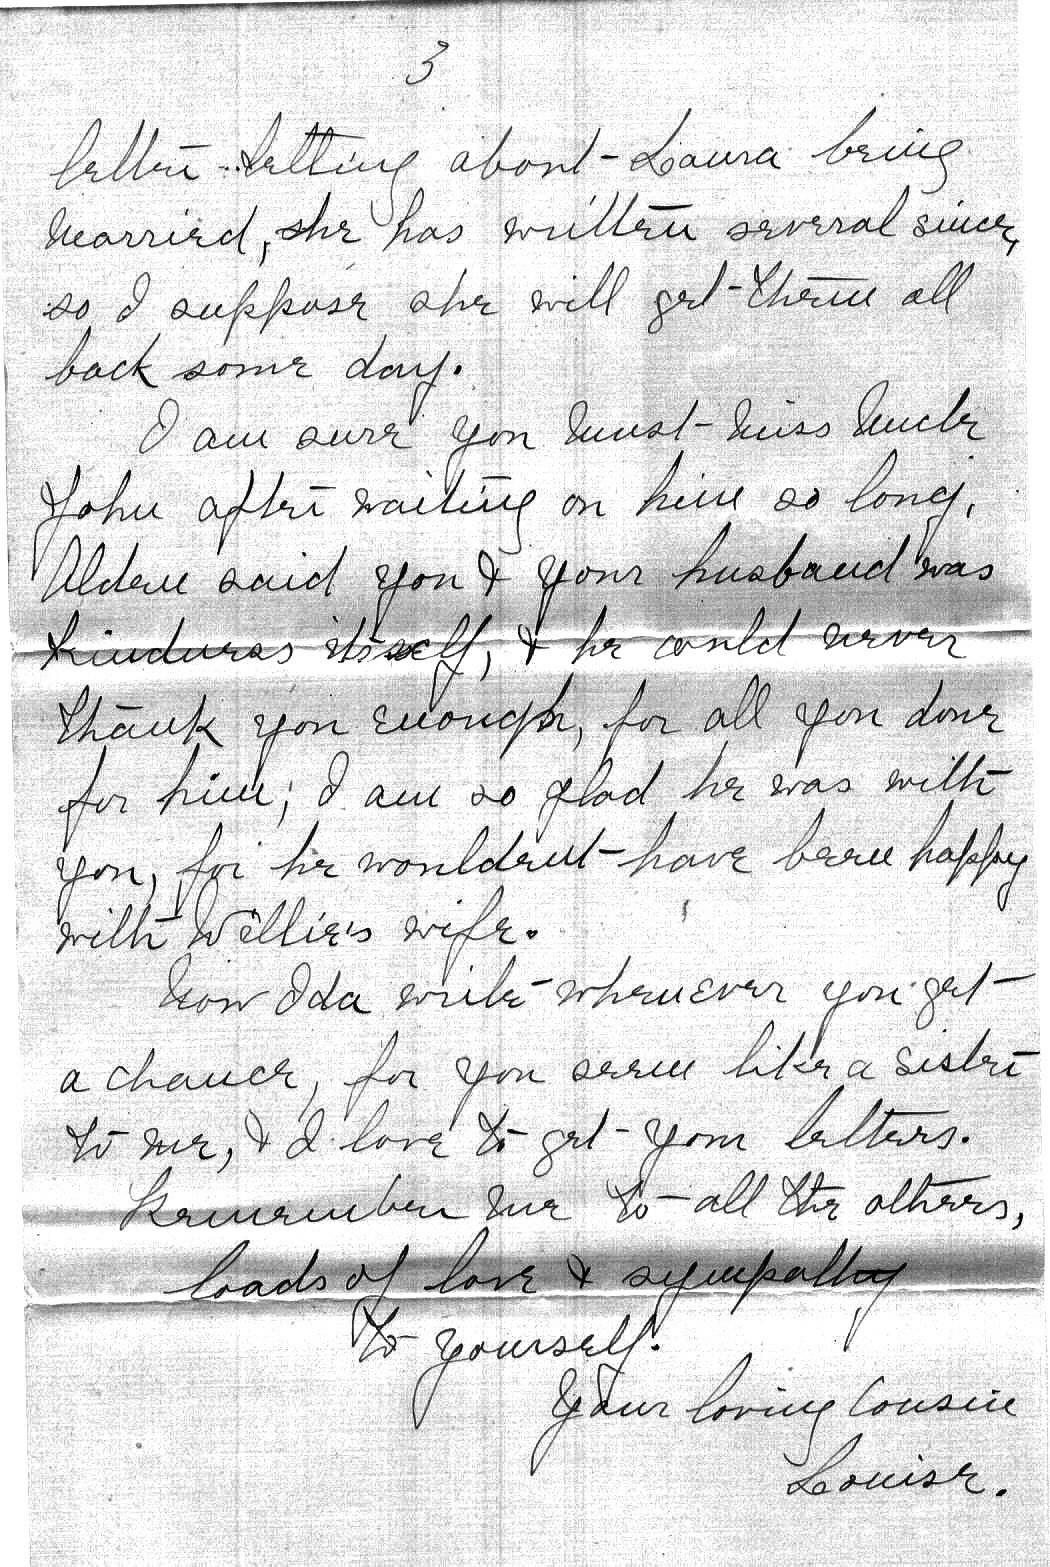 3
letter telling about Laura being
married, she has written several since,
so I suppose she will get them all
back some day.
I am sure you must miss Uncle
John after waiting on him so long.
Alden said you & your husband was
kindness itself, & he could never
thank you enough, for all you done
for him; I am so glad he was with
you, for he wouldent have been happy
with Willie's wife.
Now Ida write whenever you get
a chance, for you seem like a sister
to me, & I love to get your letters.
Remember me to all the others,
loads of love & sympathy
to yourself.
Your loving Cousin
Louise.